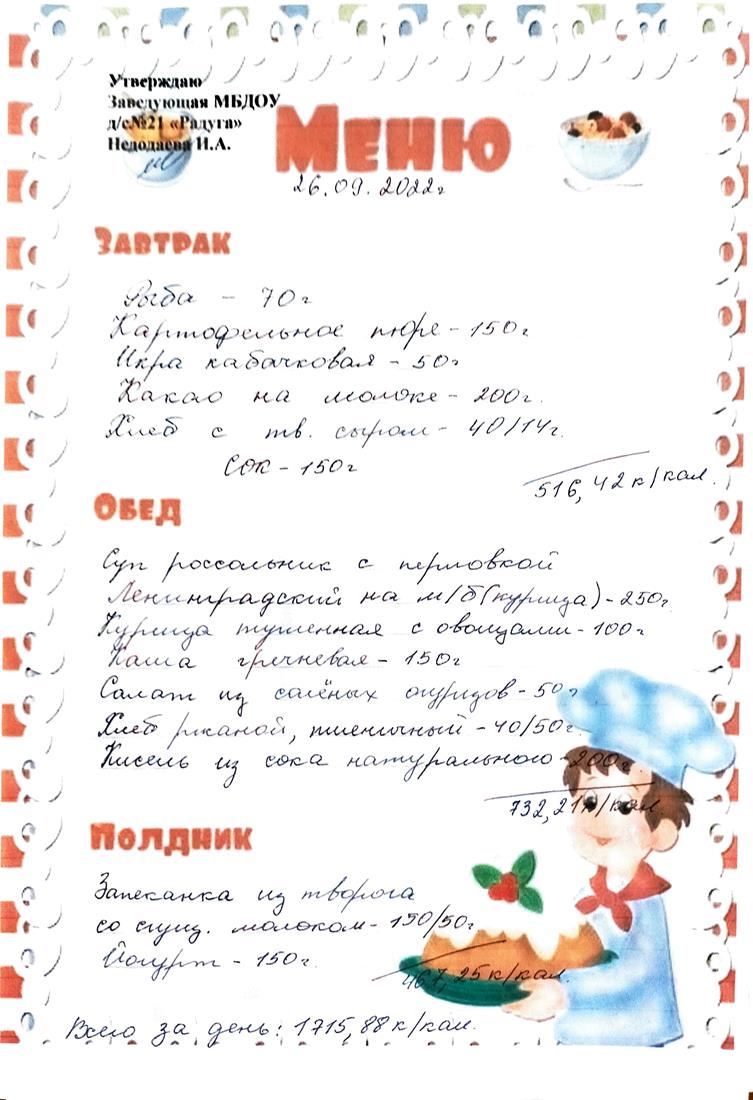 Утверждаю
Заведующая МБДОУ
д/с№21 «Радуга»
Недодаева И.А.
Меню
26.09.2022г
Завтрак
Рыба - 70г
Картофельное пюре - 150г
Икра кабачковая - 50г
Какао на молоке - 200г.
Хлеб с тв. сыром - 40/14г.
Сок - 150г
516,42к/кал.
Обед
Суп россольник с перловкой
Ленинградский на м/б(курица) - 250г
Курица тушенная с овощами - 100г
Каша гречневая - 150г
Салат из солёных огурцов - 50г
Хлеб ржаной, пшеничный - 40/50г
Кисель из сока натурального - 200г.
732,21к/кал.
Полдник
Запеканка из творога
со сгущ. молоком - 150/50г
Йогурт - 150г.
467,25к/кал.
Всего за день: 1715,88к/кал.